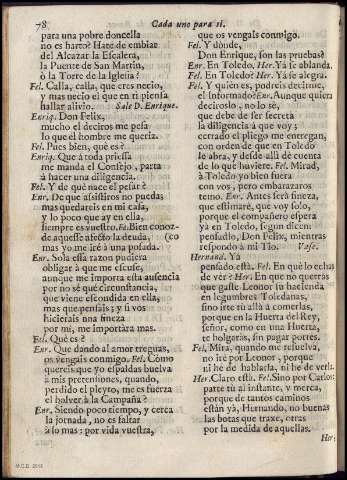 78 Cada uno para sí.
para una pobre doncella
no es harto? Hate de embiar
del Alcazar la Escalera,
la Puente de San Martin,
ò la Torre de la Iglesia?
Fel. Calla, calla, que eres necio,
y mas necio el que en ti piensa
hallar alivio. Sale D. Enrique.
Enriq. Don Felix,
mucho el deciros me pesa
lo que el hombre me cuesta.
Fel. Pues bien, què es?
Enriq. Que à toda priessa
me manda el Consejo, parta
à hacer una diligencia.
Fel. Y de què nace el pesar?
Enr. De que assistiros no puedas
mas quedareis en mi casa,
y lo poco que ay en ella,
siempre es vuestro. Fè. Bien conoz-
de aquesse afecto la deuda, (co
mas yo me irè à una posada.
Enr. Sola essa razon pudiera
obligar à que me escuse,
aunque me importa esta ausencia
por no sè què circunstancia,
que viene escondida en ella,
mas que pensais; y si vos
hicierais una fineza
por mi, me importàra mas.
Fel. Què es?
Enr. Que dando al amor treguas,
os vengais conmigo. Fel. Còmo
quereis que yo espaldas buelva
à mis pretensiones, quando,
perdido el pleyto, me es fuerza
el bolver à la Campaña?
Enr. Siendo poco tiempo, y cerca
la jornada, no es faltar
à so mas: por vida vuestra,
que os vengais conmigo.
Fel. Y dònde,
Don Enrique, son las pruebas?
Enr. En Toledo. Her. Yà se ablanda.
Fel. En Toledo? Her. Yà se alegra.
Fel. Y quièn es, podreis decirme,
el Informado? Enr. Aunque quiera
deciroslo, no lo sè,
que debe de ser secreta
la diligencia à que voy;
cerrado el pliego me entregan,
con orden de que en Toledo
le abra, y desde allì dè cuenta
de lo que huviere. Fel. Mirad,
à Toledo yo bien fuera
con vos, pero embarazaros
temo. Enr. Antes serà fineza,
que estimarè, que voy solo,
porque el compañero espera
yà en Toledo, segun dicen:
pensadlo, Don Felix, mientras
respondo à mi Tio. Vase.
Hernand. Yà
pensado està. Fel. En què lo echas
de vèr? Her. En que no querràs
que gaste Leonor su hacienda
en legumbres Toledanas,
sino irte tù allà à comerlas,
porque en la Huerta del Rey,
señor, como en una Huerta,
te holgaràs, sin pagar portes.
Fel. Mira, quando me resuelva,
no irè por Leonor, porque
ni he de hablarla, ni he de verla.
Her. Claro està. Fel. Sino por Carlos:
parte tù al instante, y merca,
porque de tantos caminos
estàn yà, Hernando, no buenas
las botas que traxe, otras
por la medida de aquellas.
Her:
M.C.D. 2018